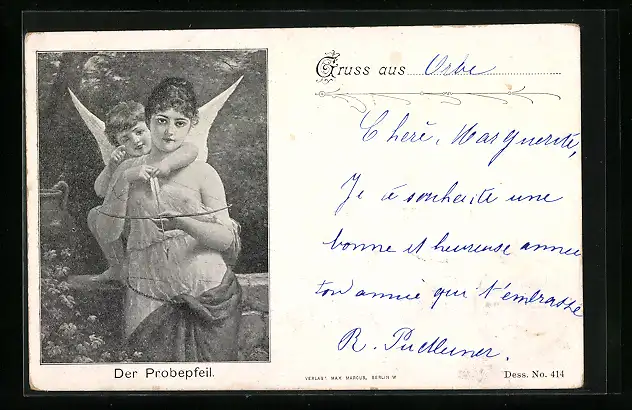 Gruss aus Orbe
Cherè, Marguerite,
Je te souhaite une
bonne et heureuse année
ton amie qui t'embrasse
R.
Der Probepfeil.
VERLAG MAX MARCUS, BERLIN W
Dess. No. 414